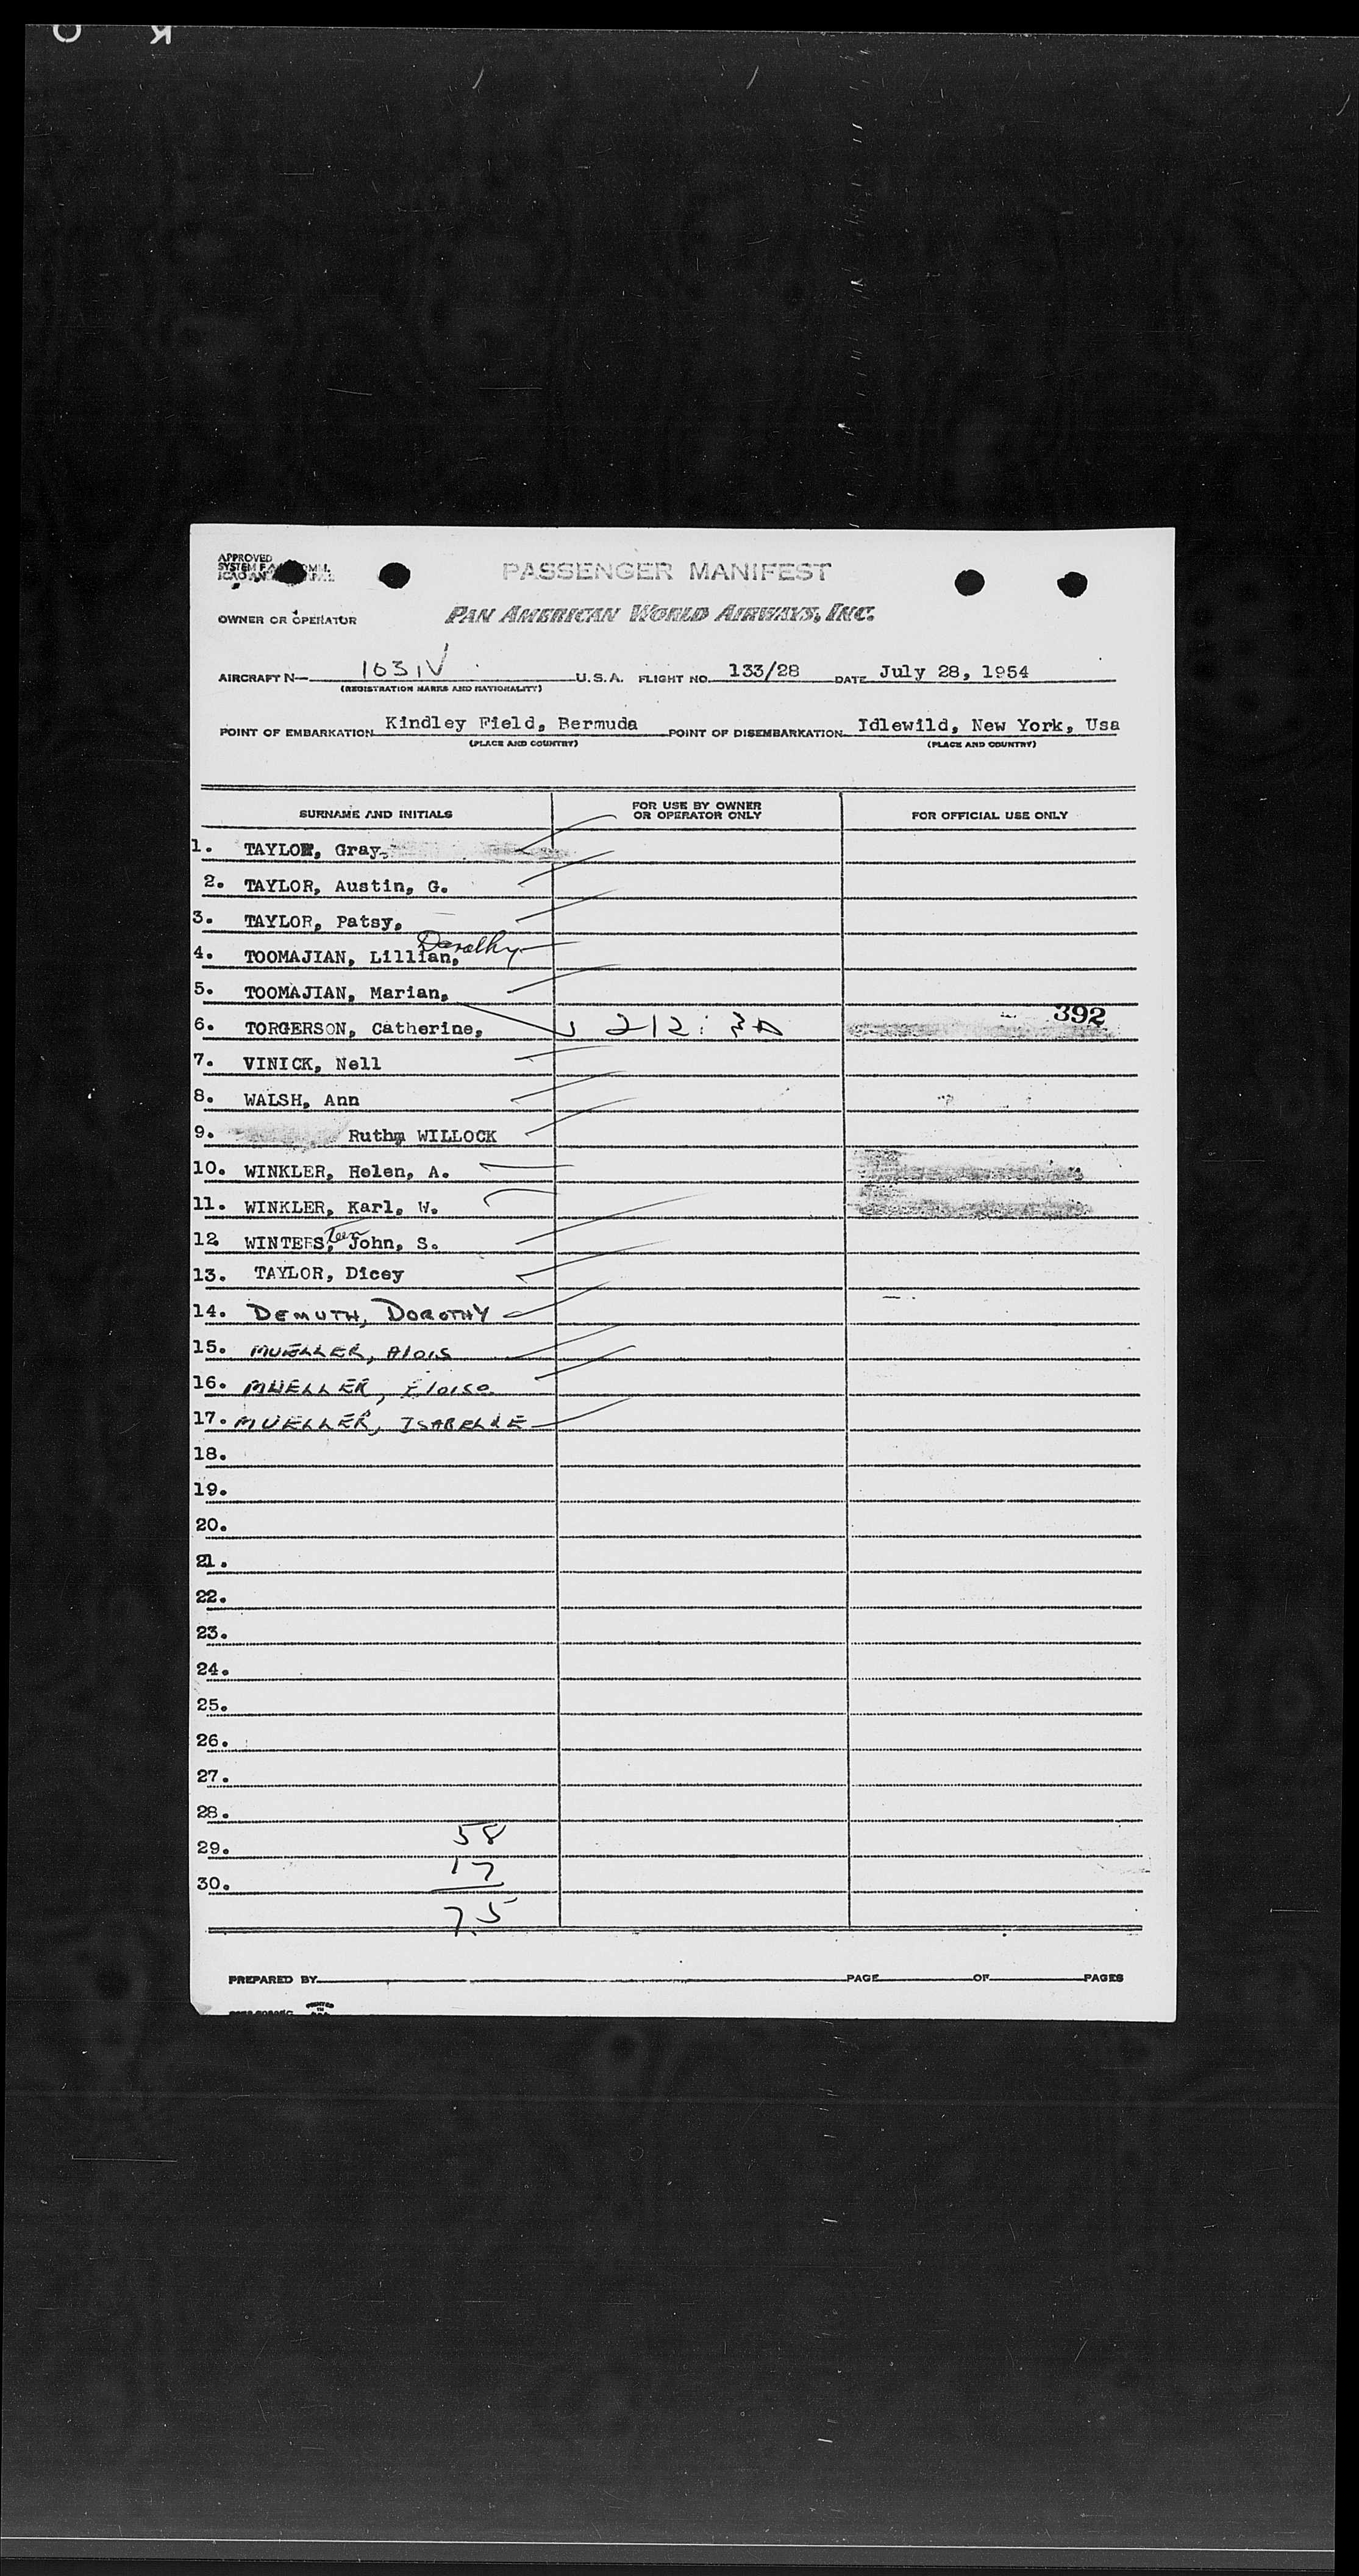 APPROVED
PASSENGER MANIFEST
OWNER OR OPERATOR PAN AMERICAN WORLD AIRWAYS, INC.
AIRCRAFT N— 1031V U.S.A. FLIGHT NO. 133/28 DATE July 28, 1954
(REGISTRATION MARKS AND NATIONALITY)
POINT OF EMBARKATION Kindley Field, Bermuda POINT OF DISEMBARKATION Idlewild, New York, Usa
(PLACE AND COUNTRY) (PLACE AND COUNTRY)
SURNAME AND INITIALS FOR USE BY OWNER OR OPERATOR ONLY FOR OFFICIAL USE ONLY
1. TAYLOR, Gray
2. TAYLOR, Austin, G.
3. TAYLOR, Patsy,
Dorothy
4. TOOMAJIAN, Lillian,
5. TOOMAJIAN, Marian,
6. TORGERSON, Catherine, 212: 392
7. VINICK, Nell
8. WALSH, Ann
9. Ruth WILLOCK
10. WINKLER, Helen, A.
11. WINKLER, Karl, W.
12. WINTERS, John, S.
13. TAYLOR, Dicey
14. DEMUTH, DOROTHY
15. MUELLER, Alois
16. MUELLER, Eloise
17. MUELLER, ISABELLE
18.
19.
20.
21.
22.
23.
24.
25.
26.
27.
28.
58
29.
17
30.
75
PREPARED BY PAGE OF PAGES